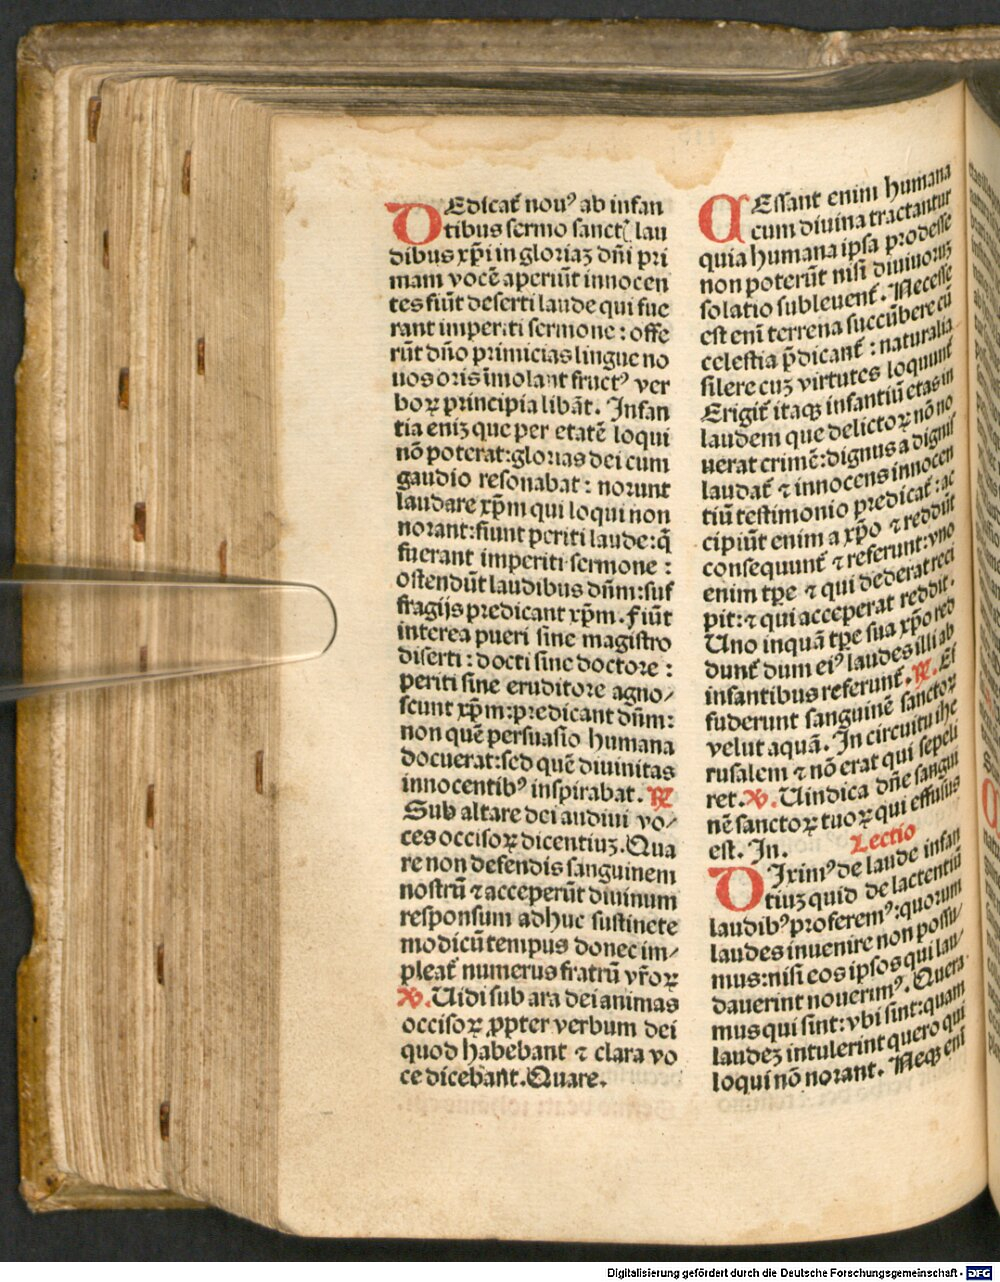 DEdicat᷑ nouꝰ ab infan
tibus sermo sanct(lau
dibus xp̄i in gloriaꝫ dn̄i pri
mam vocē aperiūt innocen
tes fiūt deserti laude qui fue
rant imperiti sermone : offe
rūt dn̄o primicias lingue no
uos oris īmolant fructꝰ ver
boꝝ principia libāt. Infan
tia eniꝫ que per etatē loqui
nō poterat:glorias dei cum
gaudio resonabat : norunt
laudare xp̄m qui loqui non
norant:fiunt periti laude:q̄
fuerant imperiti sermone :
ostendūt laudibus dn̄m:suf
fragijs predicant xp̄m. Fiūt
interea pueri sine magistro
diserti : docti sine doctore :
periti sine eruditore agno/
scunt xp̄m:predicant dn̄m:
non quē persuasio humana
docuerat:sed quē diuinitas
innocentibꝰ inspirabat. ℟
Sub altare dei audiui vo/
ces occisoꝝ dicentiuꝫ. Qua
re non defendis sanguinem
nostrū ⁊ acceperūt diuinum
responsum adhuc sustinete
modicū tempus donec im/
pleat᷑ numerus fratrū vr̄oꝝ
℣. Uidi sub ara dei animas
occisoꝝ ꝓpter verbum dei
quod habebant ⁊ clara vo
ce dicebant. Quare.
CEssant enim humana
cum diuina tractantur
quia humana ipsa prodesse
non poterūt nisi diuinoruꝫ
solatio subleuent᷑. Necesse
est enī terrena succūbere cū
celestia p̄dicant᷑ : naturalia
silere cuꝫ virtutes loquunt᷑
Erigit᷑ itaqꝫ infantiū etas in
laudem que delictoꝝ nō no
uerat crimē:dignus a dignis
laudat᷑ ⁊ innocens innocen
tiū testimonio predicat᷑ : ac
cipiūt enim a xp̄o ⁊ reddūt
consequunt᷑ ⁊ referunt:vno
enim tp̄e ⁊ qui dederat reci
pit:⁊ qui acceperat reddit.
Uno inquā tp̄e sua xp̄o red
dunt᷑ dum eiꝰ laudes illi ab
infantibus referunt᷑. ℟. Ef
fuderunt sanguinē sanctoꝝ
velut aquā. In circuitu ihe
rusalem ⁊ nō erat qui sepeli
ret. ℣. Uindica dn̄e sangui
nē sanctoꝝ tuoꝝ qui effusus
est. In. Lectio
DIximꝰ de laude infan
tiuꝫ quid de lactentiū
laudibꝰ proferemꝰ:quorum
laudes inuenire non possu/
mus:nisi eos ipsos qui lau/
dauerint nouerimꝰ. Quera
mus qui sint:vbi sint:quam
laudeꝫ intulerint quero qui
loqui nō norant. Neqꝫ enī
Digitalisierung gefördert durch die Deutsche Forschungsgemeinschaft - DFG